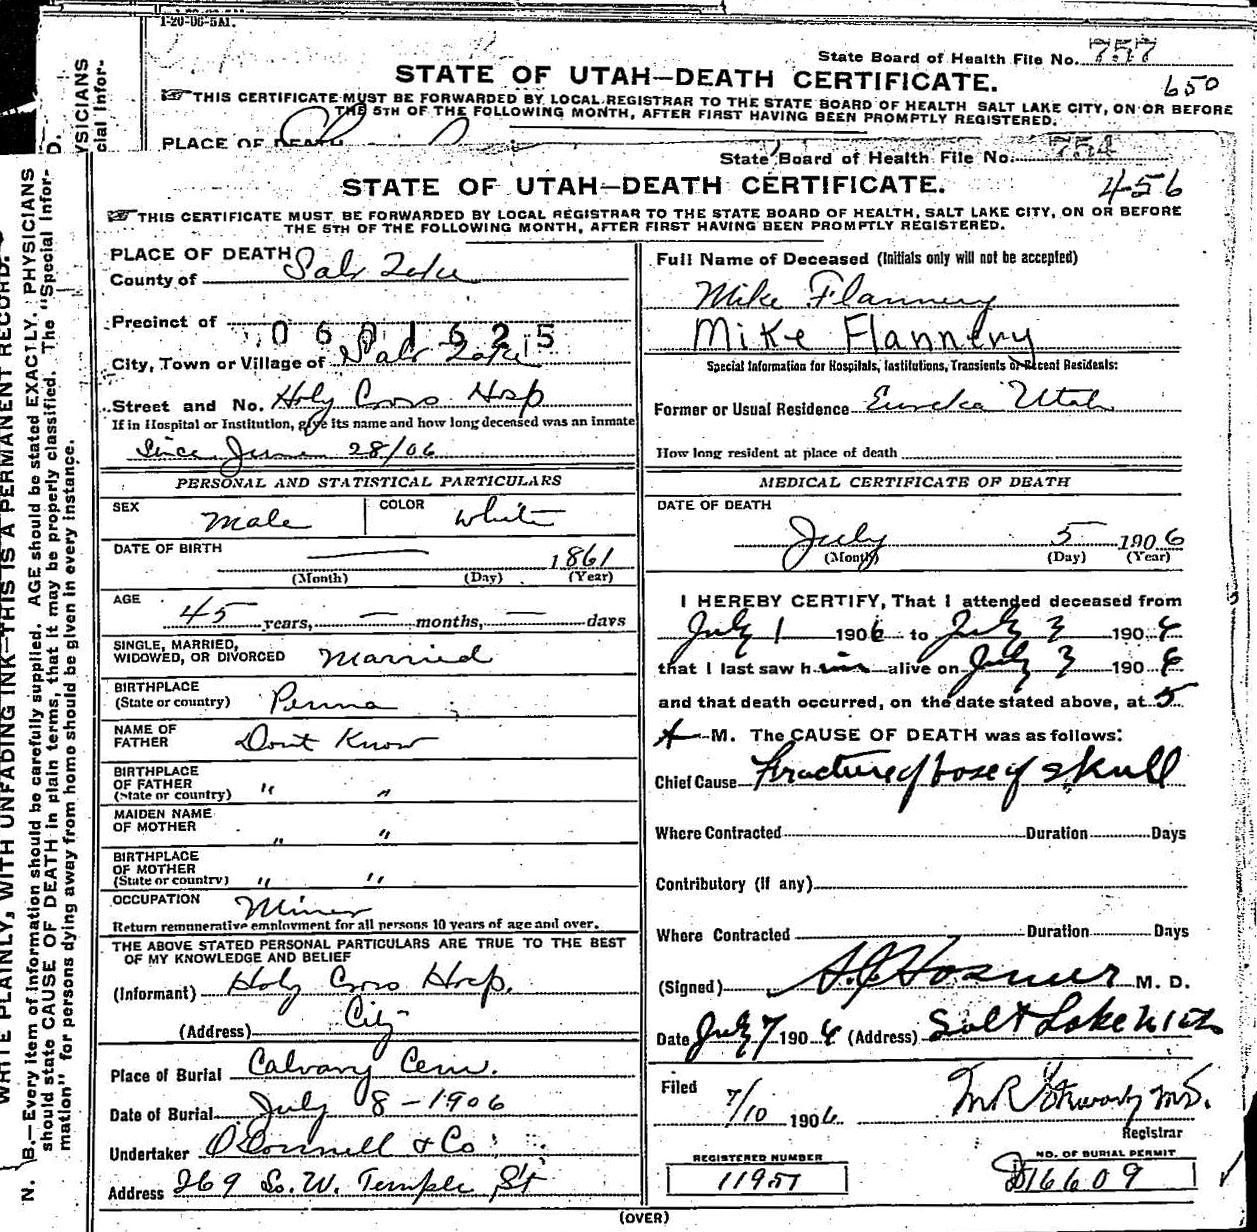 1-20-06-5M.
State Board of Health File No. 757
STATE OF UTAH—DEATH CERTIFICATE.
650
THIS CERTIFICATE MUST BE FORWARDED BY LOCAL REGISTRAR TO THE STATE BOARD OF HEALTH SALT LAKE CITY, ON OR BEFORE
THE 5TH OF THE FOLLOWING MONTH, AFTER FIRST HAVING BEEN PROMPTLY REGISTERED.
PLACE OF DEATH
State Board of Health File No. 754
STATE OF UTAH—DEATH CERTIFICATE.
456
THIS CERTIFICATE MUST BE FORWARDED BY LOCAL REGISTRAR TO THE STATE BOARD OF HEALTH, SALT LAKE CITY, ON OR BEFORE
THE 5TH OF THE FOLLOWING MONTH, AFTER FIRST HAVING BEEN PROMPTLY REGISTERED.
PLACE OF DEATH
County of Salt Lake
Precinct of
0601625
City, Town or Village of Salt Lake
Street and No. Holy Cross Hosp
If in Hospital or Institution, give its name and how long deceased was an inmate
Since June 28/06
PERSONAL AND STATISTICAL PARTICULARS
SEX Male COLOR White
DATE OF BIRTH — 1861
(Month) (Day) (Year)
AGE 45 years, — months, — days
SINGLE, MARRIED,
WIDOWED, OR DIVORCED Married
BIRTHPLACE
(State or country) Penna
NAME OF
FATHER Dont Know
BIRTHPLACE
OF FATHER
(State or country) " "
MAIDEN NAME
OF MOTHER " "
BIRTHPLACE
OF MOTHER
(State or country) " "
OCCUPATION Miner
Return remunerative employment for all persons 10 years of age and over.
THE ABOVE STATED PERSONAL PARTICULARS ARE TRUE TO THE BEST
OF MY KNOWLEDGE AND BELIEF
(Informant) Holy Cross Hosp.
(Address) City
Place of Burial Calvary Cem.
Date of Burial July 8-1906
Undertaker O'Donnell & Co
Address 269 So. W. Temple St
Full Name of Deceased (Initials only will not be accepted)
Mike Flannery
Mike Flannery
Special Information for Hospitals, Institutions, Transients or Recent Residents:
Former or Usual Residence Eureka Utah
How long resident at place of death
MEDICAL CERTIFICATE OF DEATH
DATE OF DEATH
July 5 1906
(Month) (Day) (Year)
I HEREBY CERTIFY, That I attended deceased from
July 1 1906 to July 3 1906
that I last saw him alive on July 3 1906
and that death occurred, on the date stated above, at 5
A M. The CAUSE OF DEATH was as follows:
Chief Cause Fracture of base of skull
Where Contracted Duration Days
Contributory (If any)
Where Contracted Duration Days
(Signed) Hosmer M. D.
Date July 7 1906 (Address) Salt Lake Utah
Filed 7/10 1906
M.D.
Registrar
REGISTERED NUMBER
11951
NO. OF BURIAL PERMIT
D16609
(OVER)
WRITE PLAINLY, WITH UNFADING INK—THIS IS A PERMANENT RECORD.
N. B.—Every item of information should be carefully supplied. AGE should be stated EXACTLY. PHYSICIANS
should state CAUSE OF DEATH in plain terms, that it may be properly classified. The "Special Infor-
mation" for persons dying away from home should be given in every instance.
YSICIANS
cial Infor-